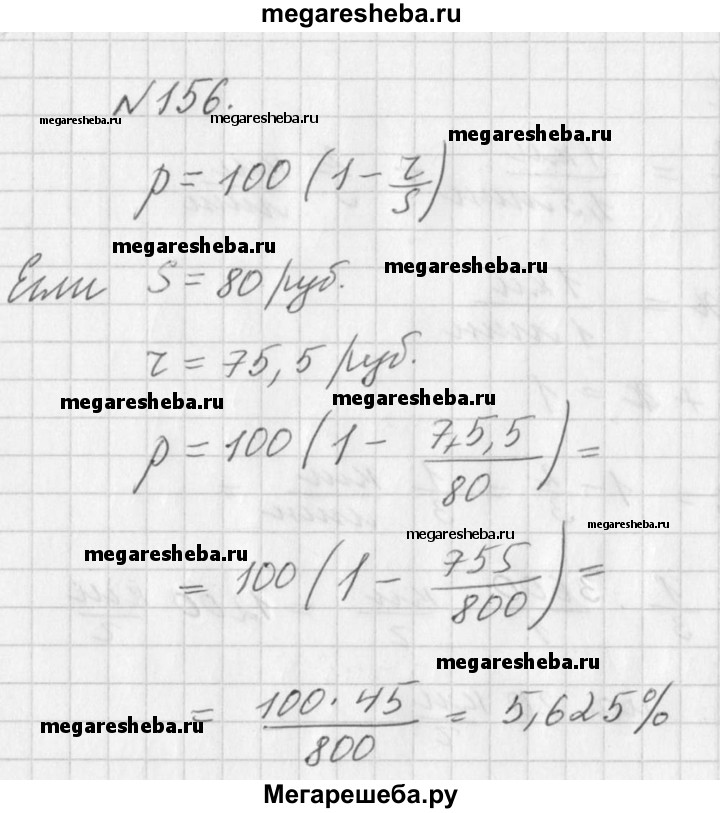 megaresheba.ru
№156.
megaresheba.ru megaresheba.ru
megaresheba.ru
p = 100 (1 - r/S)
megaresheba.ru
Если S = 80 руб.
megaresheba.ru
r = 75,5 руб.
megaresheba.ru megaresheba.ru
p = 100 (1 - 75,5/80) =
megaresheba.ru megaresheba.ru
megaresheba.ru
= 100 (1 - 755/800) =
megaresheba.ru
= 100·45/800 = 5,625%
megaresheba.ru
Мегарешеба.ру